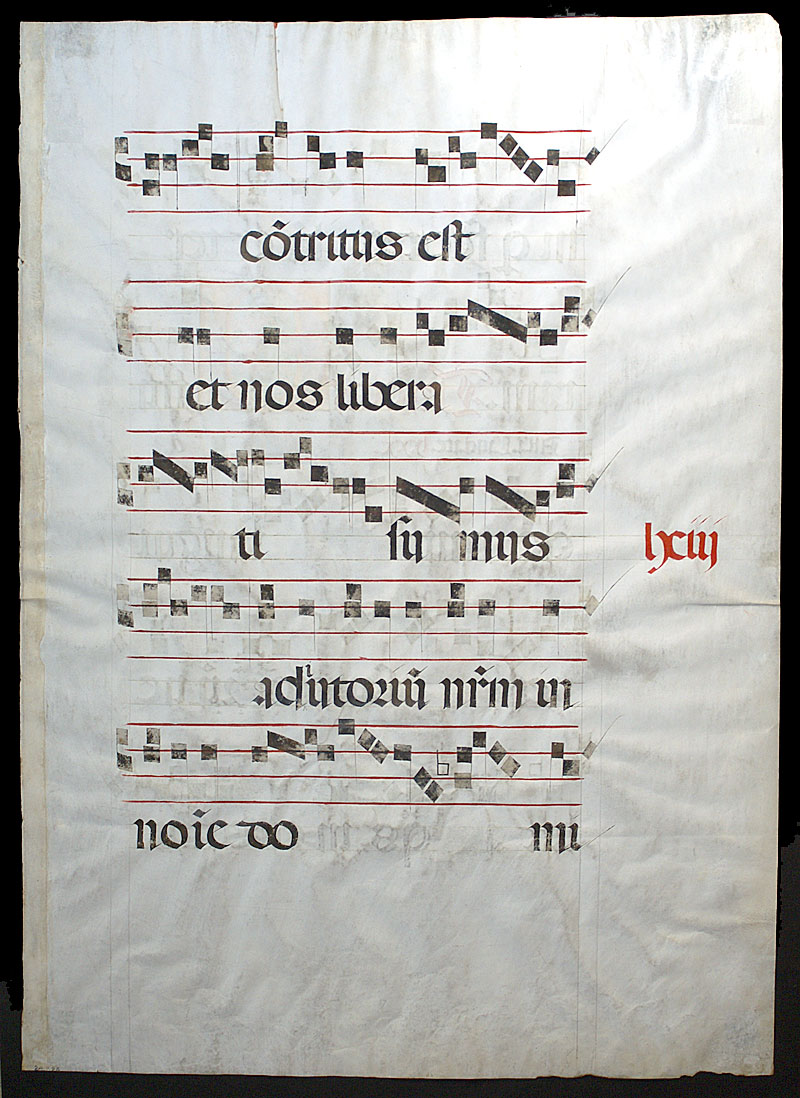 cõtritus est
et nos libera
ti su mus
lxiij
adiutoriũ nr̃m in
noĩe do
mi